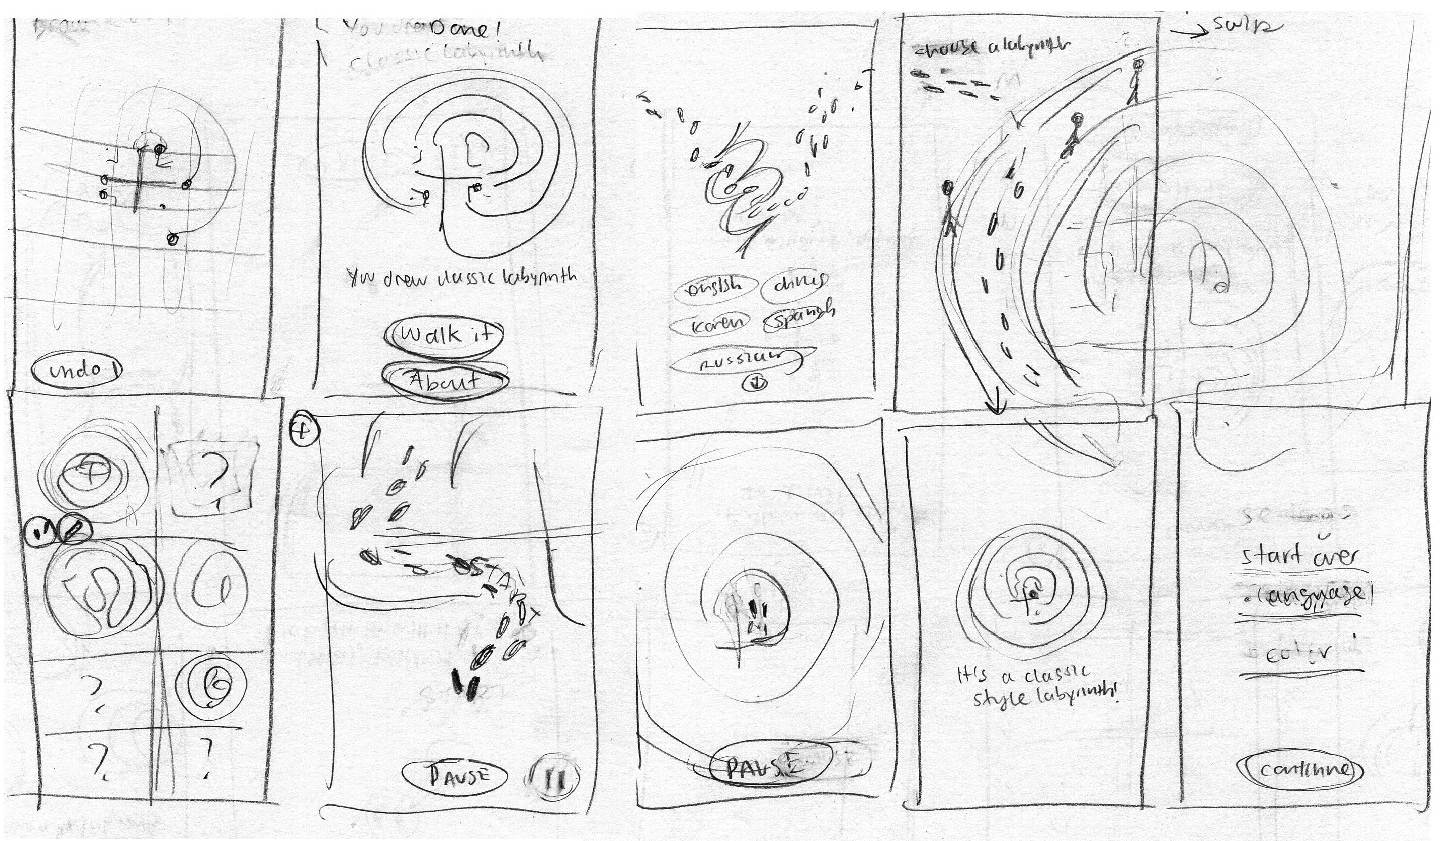 Draw
undo!
You drew Done!
classic labyrinth
You drew classic labyrinth
Walk it
About
english
Koren
Spanish
russian
choose a labyrinth
swipe
START
PAUSE
PAUSE
It's a classic
style labyrinth!
start over
language!
color
continue